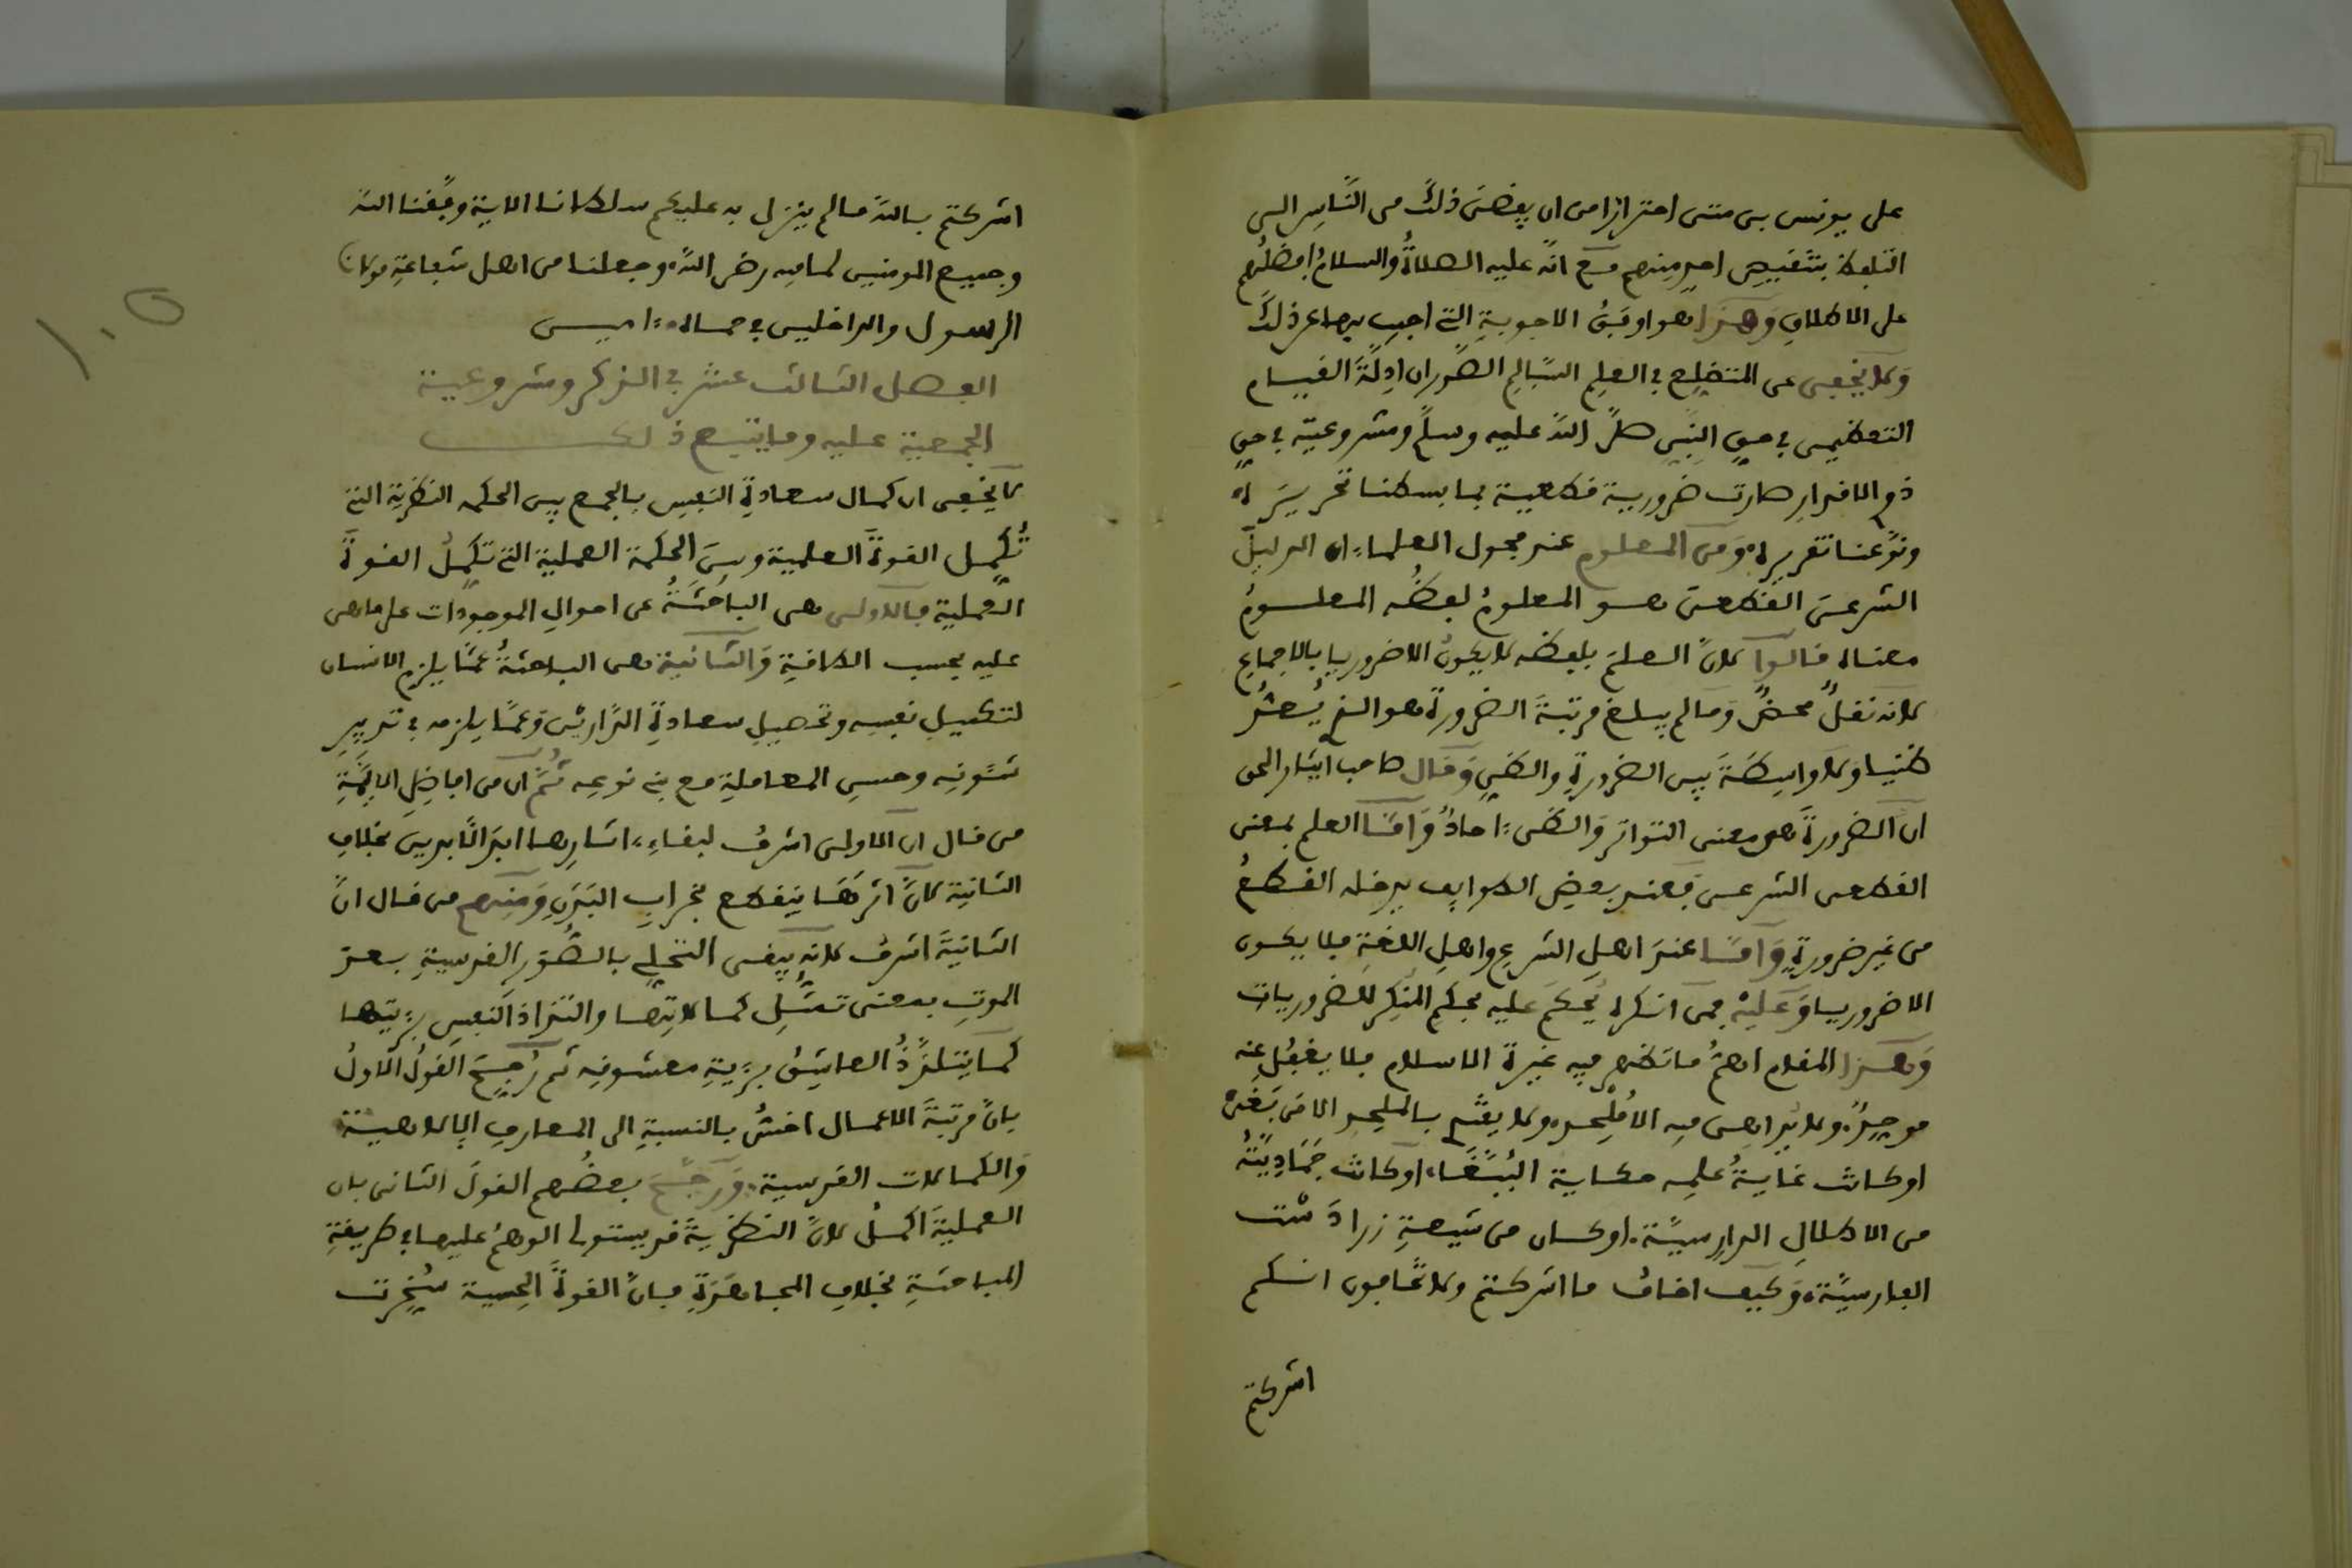 على يونس بن متى احترازا من ان يفضى ذلك من الناس الى
التلفظ بتنقيص احد منهم مع انه عليه الصلاة والسلام افضلهم
على الاطلاق وهذا هو اوفق الاجوبة التى اجيب بها عن ذلك
ولا يخفى عن المتضلع فى العلم السالم الصدر ان ادلة القيام
التعظيمى فى حق النبى صلى الله عليه وسلم ومشروعيته فى حق
ذوى الاقدار صارت ضرورية قطعية بما بسطنا تحريره
ونوعنا تقريره ومن المعلوم عند فحول العلماء ان الدليل
الشرعى القطعى هو المعلوم لفظه المعلوم
معناه قالوا لان العلم بلفظه لا يكون الا ضروريا بالاجماع
لانه نقل محض وما لم يبلغ مرتبة الضرورة هو الذى يُعدّ
ظنيا ولا واسطة بين الضرورة والظنى وقال صاحب ايثار الحق
ان الضرورة هى معنى التواتر والظنى ءاحاد واما العلم بمعنى
القطعى الشرعى فعند بعض الطوايف يدخله القطع
من غير ضرورة واما عند اهل الشرع واهل اللغة فلا يكون
الا ضروريا وعليه فمن انكره يحكم عليه بحكم المنكر للضروريات
وهذا المقام اهم ما تظهر فيه غيرة الاسلام فلا يغفل عنه
موحد ولا يداهن فيه الا ملحد ولا يغتر بالملحد الا من
او كانت غاية علمه حكاية الببغاء او كانت جمادية
من الاطلال الدارسية او كان من شيعة زرادشت
الفارسية وكيف اخاف ما اشركتم ولا تخافون انكم
اشركتم
اشركتم بالله ما لم ينزل به عليكم سلطانا الاية وفقنا الله
وجميع المومنين لما فيه رضى الله وجعلنا من اهل شفاعة مولانا
الرسول والداخلين فى حماه ءامين
الفصل الثالث عشر فى الذكر ومشروعية
الجمعية عليه وما يتبع ذلك
لا يخفى ان كمال سعادة النفس بالجمع بين الحكمة النظرية التى
تُكمل القوة العلمية وبين الحكمة العملية التى تكمل القوة
العملية فالاولى هى الباحثة عن احوال الموجودات على ما هى
عليه بحسب الطاقة والثانية هى الباحثة عما يلزم الانسان
لتكميل نفسه وتحصيل سعادة الدارين وعما يلزمه فى تدبير
شئونه وحسن المعاملة مع بنى نوعه ثم ان من افاضل الائمة
من قال ان الاولى اشرف لبقاء ءاثارها ابد الابدين بخلاف
الثانية لان اثرها ينقطع بخراب البدن ومنهم من قال ان
الثانية اشرف لانه يبقى التحلى بالصور القدسية بعد
الموت بمعنى تمثل كمالاتها والتذاذ النفس برؤيتها
كما يتلذذ العاشق برؤية معشوقه ثم رجح القول الاول
بان مرتبة الاعمال اخس بالنسبة الى المعارف الالاهية
والكمالات القدسية ورجح بعضهم القول الثانى بان
العملية اكمل لان النظرية قد يستولى الوهم عليها فى طريقة
المباحثة بخلاف المجاهدة فان القوة الحسية سُخرت
١٠٥